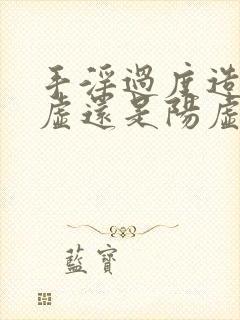 手淫過度造
虛還是陽虛
藍寶